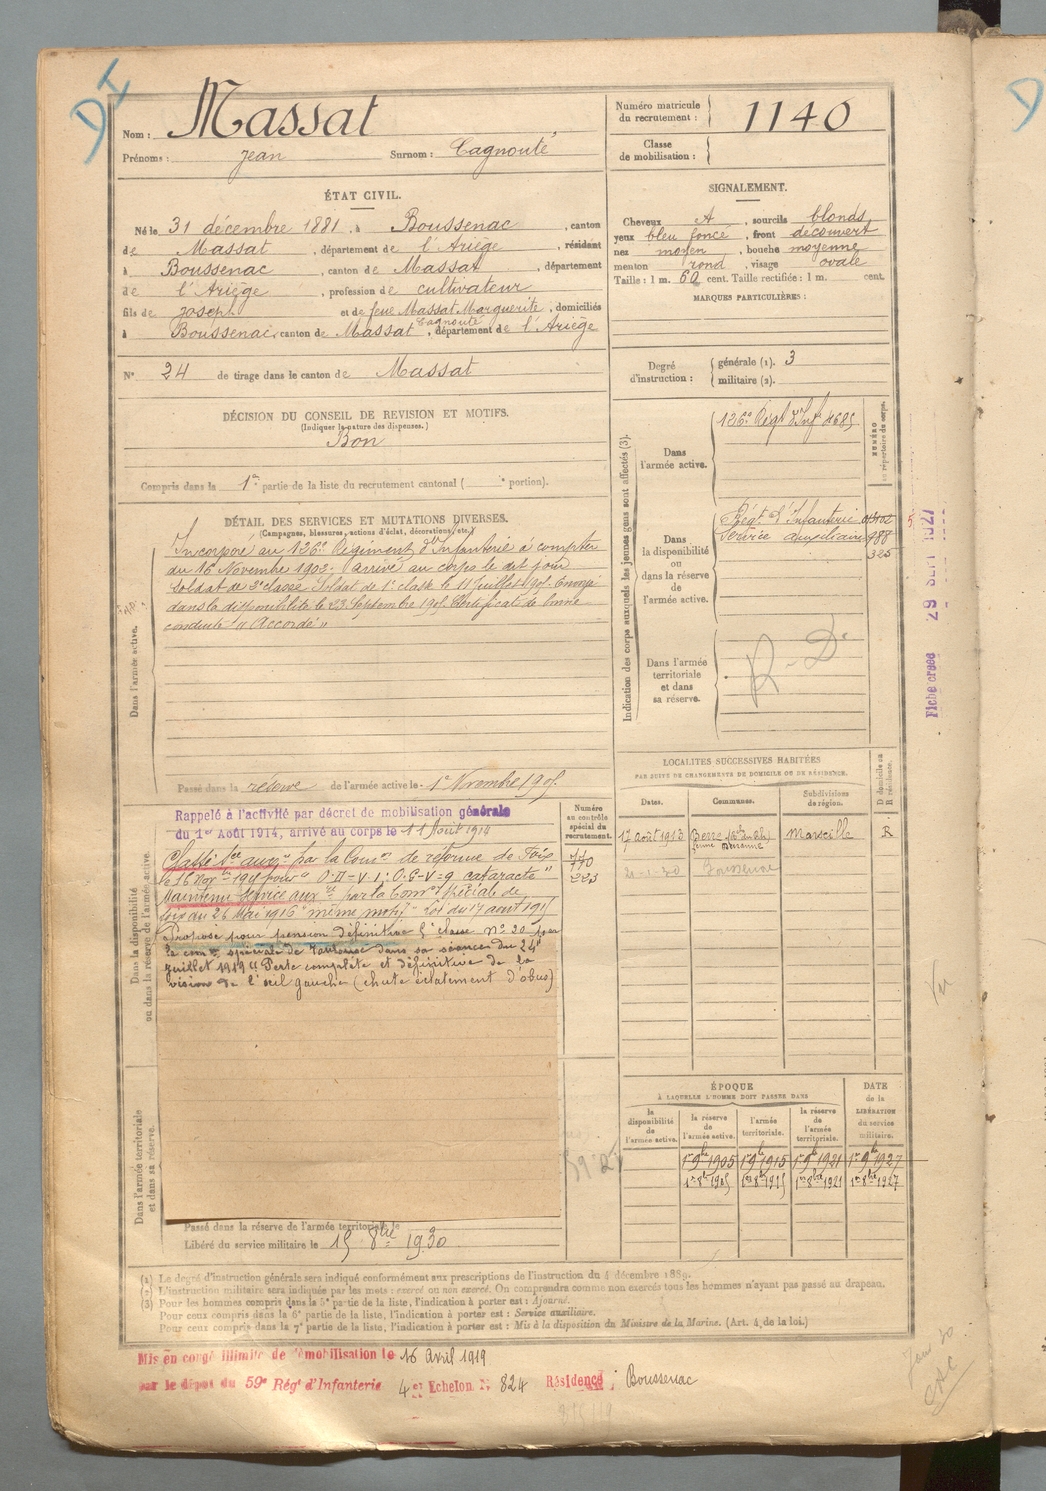 DI
Nom : Massat
Prénoms : Jean Surnom : Cagnouté
Numéro matricule du recrutement : 1140
Classe de mobilisation :
ÉTAT CIVIL.
Né le 31 décembre 1881, à Boussenac, canton
de Massat, département de l'Ariège, résidant
à Boussenac, canton de Massat, département
de l'Ariège, profession de cultivateur
fils de Joseph et de feue Massat Marguerite, domiciliés
Cagnouté
à Boussenac, canton de Massat, département de l'Ariège
N° 24 de tirage dans le canton de Massat
SIGNALEMENT.
Cheveux A, sourcils blonds
yeux bleu foncé, front découvert
nez moyen, bouche moyenne
menton rond, visage ovale
Taille : 1 m. 60 cent. Taille rectifiée : 1 m. cent.
MARQUES PARTICULIÈRES :
Degré d'instruction : générale (1). 3
militaire (2).
DÉCISION DU CONSEIL DE REVISION ET MOTIFS.
(Indiquer la nature des dispenses.)
Bon
Compris dans la 1re partie de la liste du recrutement cantonal ( e portion).
DÉTAIL DES SERVICES ET MUTATIONS DIVERSES.
(Campagnes, blessures, actions d'éclat, décorations, etc.)
Dans l'armée active.
Incorporé au 126e Régiment d'Infanterie à compter
du 16 Novembre 1902. Arrivé au corps le dit jour
soldat de 2e classe. Soldat de 1e classe le 11 Juillet 1905. Envoyé
dans la disponibilité le 23 Septembre 1905. Certificat de bonne
conduite "Accordé"
Passé dans la réserve de l'armée active le 1e Novembre 1905.
Indication des corps auxquels les jeunes gens sont affectés (3).
NUMÉRO au répertoire du corps.
Dans l'armée active.
126e Régt d'Infie 4685
Dans la disponibilité ou dans la réserve de l'armée active.
Régt d'Infanterie
Service auxiliaire 988
325
Dans l'armée territoriale et dans sa réserve.
R - D
Fiche créée 29 SEPT 1927
Dans la disponibilité ou dans la réserve de l'armée active.
Rappelé à l'activité par décret de mobilisation générale
du 1er Août 1914, arrivé au corps le 11 Août 1914
Classé Sce auxre par la Comon de réforme de Foix
cataracte"
Maintenu service auxre par la Comon spéciale de
Foix du 26 Mai 1916 même motif - Loi du 17 août 1915
Proposé pour pension définitive 5e classe N° 20 par
la comon spéciale de Toulouse dans sa séance du 24
juillet 1919 "Perte complète et définitive de la
vision de l'œil gauche (chute éclatement d'obus)
Numéro au contrôle spécial du recrutement.
223
LOCALITÉS SUCCESSIVES HABITÉES
PAR SUITE DE CHANGEMENTS DE DOMICILE OU DE RÉSIDENCE.
Dates. Communes. Subdivisions de région. D domicile ou R résidence.
17 août 1913 Berre Marseille R
21-1-30 Boussenac
Dans l'armée territoriale et dans sa réserve.
ÉPOQUE
À LAQUELLE L'HOMME DOIT PASSER DANS
la disponibilité de l'armée active. la réserve de l'armée active. l'armée territoriale. la réserve de l'armée territoriale. DATE de la LIBÉRATION du service militaire.
1er 9bre 1905 1er 9bre 1915 1er 9bre 1921 1er 9bre 1927
1er 8bre 1905 1er 8bre 1915 1er 8bre 1921 1er 8bre 1927
Passé dans la réserve de l'armée territoriale le
Libéré du service militaire le 15 8bre 1930
(1) Le degré d'instruction générale sera indiqué conformément aux prescriptions de l'instruction du 4 décembre 1889.
(2) L'instruction militaire sera indiquée par les mots : exercé ou non exercé. On comprendra comme non exercés tous les hommes n'ayant pas passé au drapeau.
(3) Pour les hommes compris dans la 5e partie de la liste, l'indication à porter est : Ajourné.
Pour ceux compris dans la 6e partie de la liste, l'indication à porter est : Service auxiliaire.
Pour ceux compris dans la 7e partie de la liste, l'indication à porter est : Mis à la disposition du Ministre de la Marine. (Art. 4 de la loi.)
Mis en congé illimité de démobilisation le 16 Avril 1919
par le dépôt du 59e Rég' d'Infanterie 4e Echelon N° 824 Résidence : Boussenac